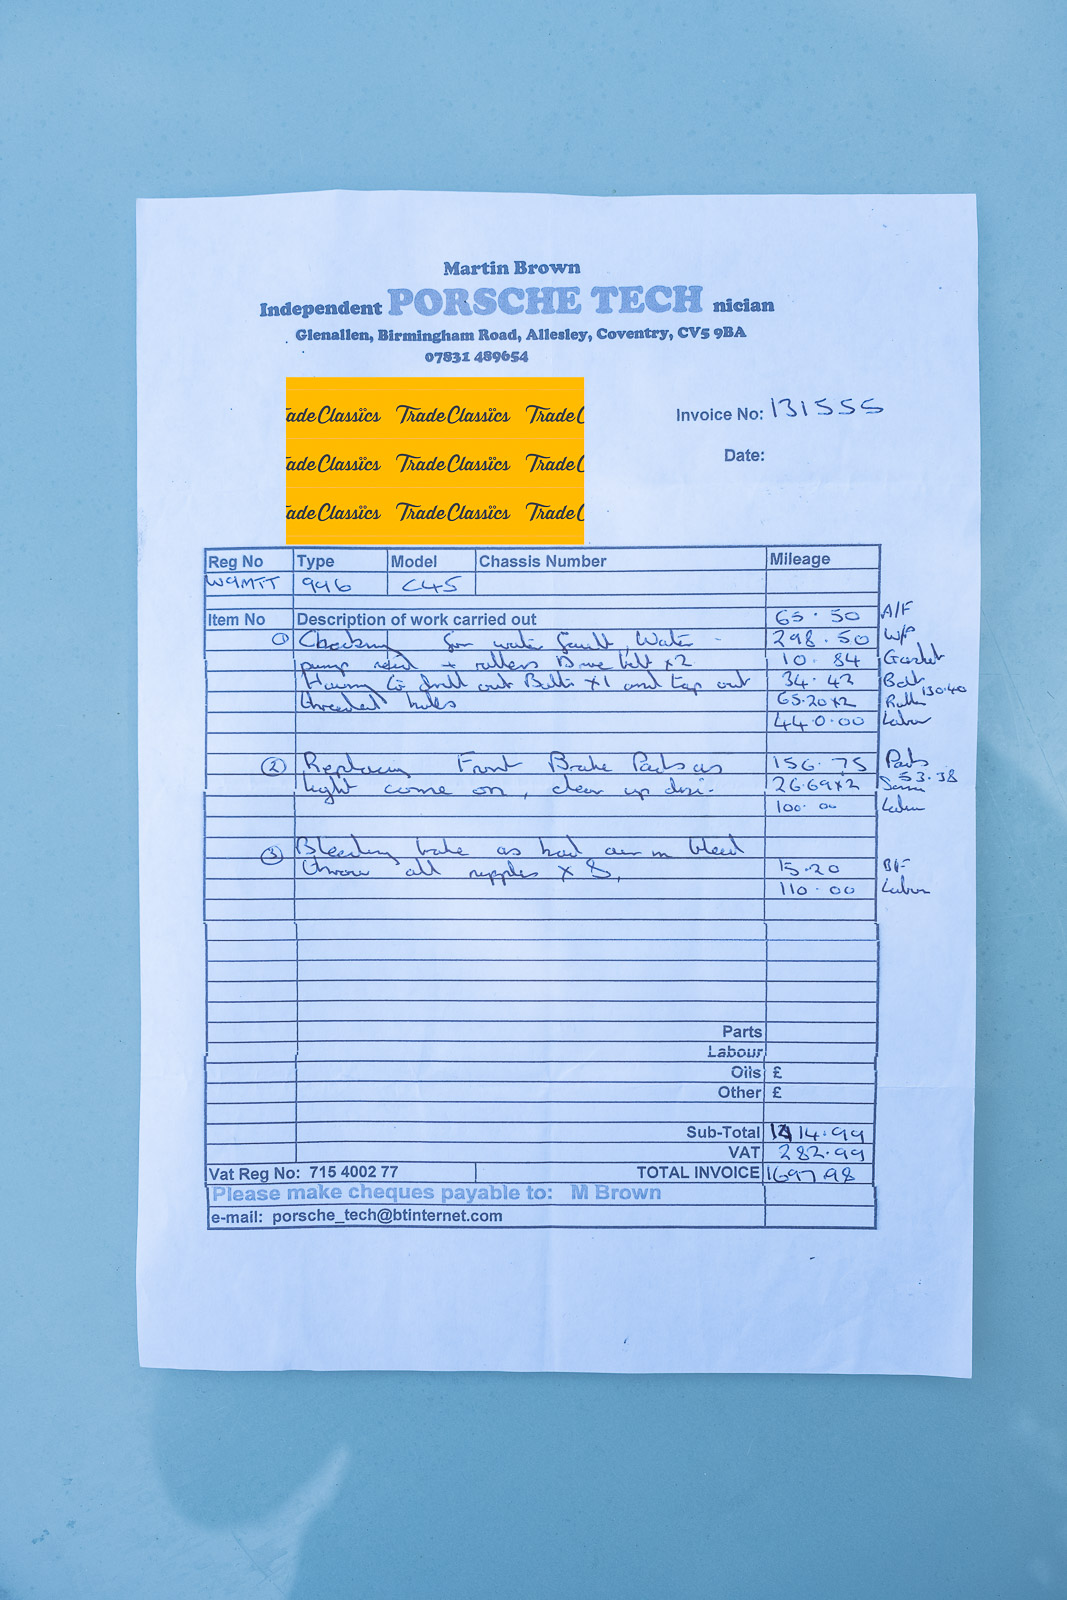 Martin Brown
Independent PORSCHE TECH nician
Glenallen, Birmingham Road, Allesley, Coventry, CV5 9BA
07831 489654
ade Classics Trade Classics Trade C
ade Classics Trade Classics Trade C
ade Classics Trade Classics Trade C
Invoice No: 131555
Date:
Reg No Type Model Chassis Number Mileage
W9MTT 996 C4S
Item No Description of work carried out 65.50 A/F
① Checking for water fault, Water 298.50 W/P
pump + rollers Drive belt x2 10.84 Gasket
Having to drill out Bolts x1 and tap out 34.42 Belt
threaded holes 65.20x2 130.40
440.00 Labour
② Replacing Front Brake Pads as 156.75 Pads
light come on, clean up 26.69x2 53.38
100.00 Labour
③ Bleeding brake as had air in bleed
throw all nipples x 8, 15.20 BF
110.00 Labour
Parts
Labour
Oils £
Other £
Sub-Total 1414.99
VAT 282.99
Vat Reg No: 715 4002 77 TOTAL INVOICE 1697.98
Please make cheques payable to: M Brown
e-mail: porsche_tech@btinternet.com